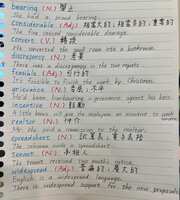 bearing (N.) 舉止
She had a proud bearing.
considerable (Adj.) 相當多的，相當大的，重要的
The fire caused considerable damage.
convert (V.) 轉換
He converted the spare room into a bathroom.
discrepancy (N.) 差異
There was a discrepancy in the two reports.
feasible (Adj.) 可行的
It's feasible to finish the work by Christmas.
grievance (N.) 不平
He'd been harbouring a grievance against his boss.
incentive (N.) 鼓勵
A little bonus will give the employees an incentive to work
realtor (N.) 仲介
Mr. He paid a commission to the realtor.
spreadsheet (N.) 試算表
The schema suits a spreadsheet.
tenant (N.) 承租人
The tenant received two month's notice.
widespread (Adj.) 普遍的，廣大的
English is a widespread language.
There is widespread support for the new proposals